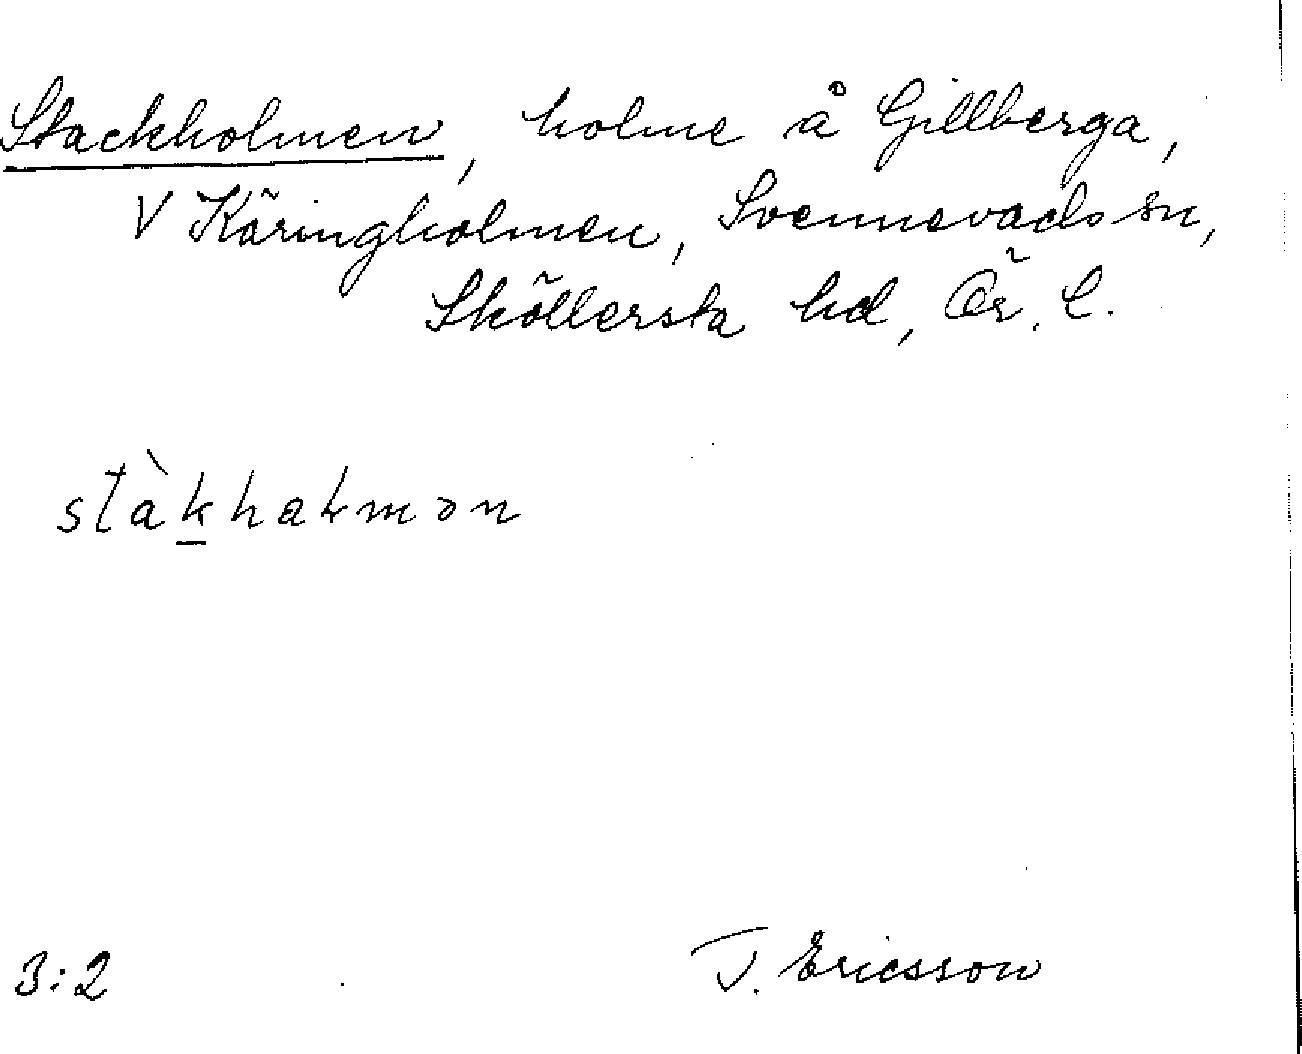 Stackholmen, holme å Gillberga,
V Käringholmen, Svennevads sn,
Sköllersta hd, Ör. l.
stàk̲haɫmən
3:2 J. Ericsson